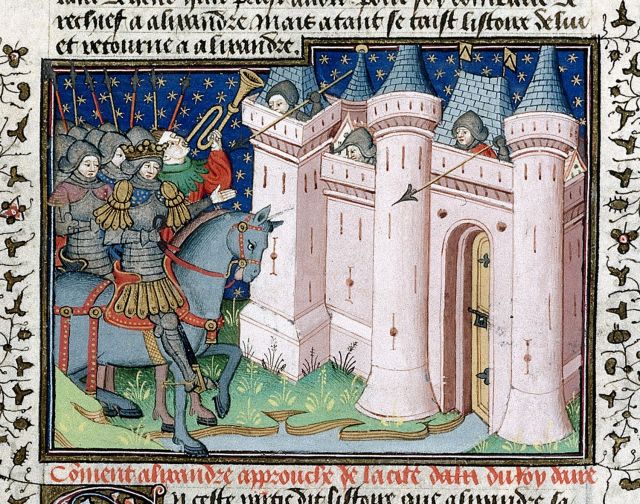 rechief a alixandre Mais atant se taist listoire de lui
et retourne a alixandre.
Cōment alixandre approuche de la cite du roy daire
En ceste partie dit listoire que alixandre